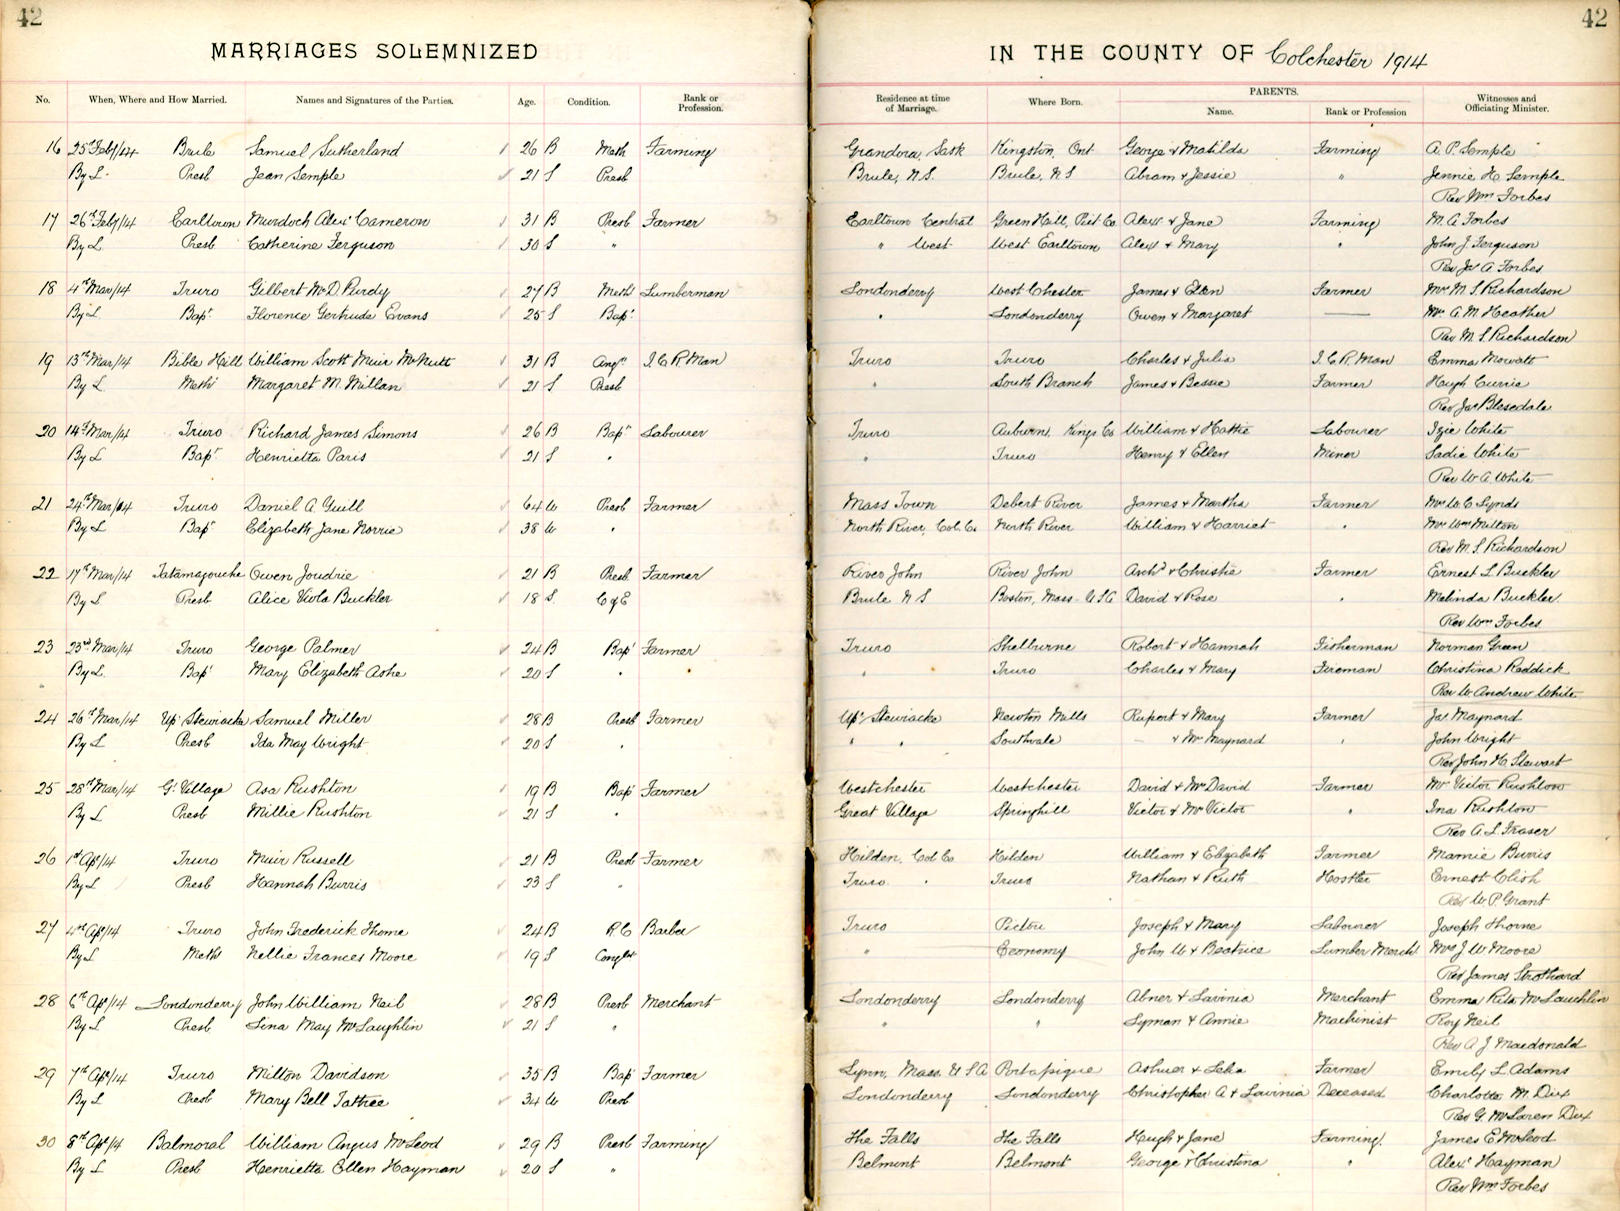 42
42
MARRIAGES SOLEMNIZED IN THE COUNTY OF Colchester 1914
No. When, Where and How Married. Names and Signatures of the Parties. Age. Condition. Rank or Profession. Residence at time of Marriage. Where Born. PARENTS. Name. Rank or Profession Witnesses and Officiating Minister.
16 25th Feby/14 Brule Samuel Sutherland 26 B Meth Farming Grandora, Sask Kingston, Ont George & Matilda Farming A. P. Semple
By L Presb Jean Semple 21 S Presb Brule, N.S. Brule, N S Abram & Jessie " Jennie H Semple
Rev Wm Forbes
17 26th Feby/14 Earltown Murdoch Alexr Cameron 31 B Presb Farmer Earltown Central Green Hill, Pict Co Alexr & Jane Farming M. A Forbes
By L Presb Catherine Ferguson 30 S " " West West Earltown Alexr & Mary " John J. Ferguson
Rev Jas A Forbes
18 4th Mar/14 Truro Gilbert McD. Purdy 27 B Meth Lumberman Londonderry West Chester James & Ellen Farmer Mrs M. S. Richardson
By L Bapt Florence Gertrude Evans 25 S Bapt " Londonderry Owen & Margaret — Mr A. M. Heather
Rev M. S. Richardson
19 13th Mar/14 Bible Hill William Scott Muir McNutt 31 B Angn I. C. R. Man Truro Truro Charles & Julia I. C. R. Man Emma Mowatt
By L Meth Margaret McMillan 21 S Presb " South Branch James & Bessie Farmer Hugh Currie
Rev Jas Blesedale
20 14th Mar/14 Truro Richard James Simons 26 B Bapt Labourer Truro Auburn, Kings Co William & Hattie Labourer Izie White
By L Bapt Henrietta Paris 21 S " " Truro Henry & Ellen Miner Sadie White
Rev W. A. White
21 24th Mar/14 Truro Daniel A Yuill 64 W Presb Farmer Mass Town Debert River James & Martha Farmer Mrs W. C Lynds
By L Bapt Elizabeth Jane Norrie 38 W " North River, Col. Co. North River William & Harriet " Mrs Wm Milton
Rev M. S. Richardson
22 17th Mar/14 Tatamagouche Owen Joudrie 21 B Presb Farmer River John River John Archd & Christie Farmer Ernest L Buckler
By L Presb Alice Viola Buckler 18 S. C of E Brule N S Boston, Mass U S A David & Rose " Melinda Buckler
Rev Wm Forbes
23 23rd Mar/14 Truro George Palmer 24 B Bapt Farmer Truro Shelburne Robert & Hannah Fisherman Norman Green
By L Bapt Mary Elizabeth Ashe 20 S " " Truro Charles & Mary Fireman Christina Reddick
Rev W Andrew White
24 26th Mar/14 Upr Stewiacke Samuel Miller 28 B Presb Farmer Upr Stewiacke Newton Mills Rupert & Mary Farmer Jas Maynard
By L Presb Ida May Wright 20 S " " " Southvale — & Mrs Maynard " John Wright
Rev John H. Stewart
25 28th Mar/14 Gt Village Asa Rushton 19 B Bapt Farmer Westchester Westchester David & Mrs David Farmer Mrs Victor Rushton
By L Presb Millie Rushton 21 S " Great Village Springhill Victor & Mrs Victor " Ina Rushton
Rev A. L. Fraser
26 1st Apr/14 Truro Muir Russell 21 B Presb Farmer Hilden, Col Co Hilden William & Elizabeth Farmer Mamie Burris
By L Presb Hannah Burris 23 S " Truro " Truro Nathan & Ruth Hostler Ernest Clish
Rev W. P. Grant
27 4th Apr/14 Truro John Frederick Thorne 24 B R C Barber Truro Pictou Joseph & Mary Labourer Joseph Thorne
By L Meth Nellie Frances Moore 19 S Conglst " Economy John W & Beatrice Lumber Merch Mrs J. W. Moore
Rev James Strothard
28 6th Apr/14 Londonderry John William Neil 28 B Presb Merchant Londonderry Londonderry Abner & Lavinia Merchant Emma Rita McLauchlin
By L Presb Lina May McLaughlin 21 S " " " Lyman & Annie Machinist Roy Neil
Rev A. J. Macdonald
29 7th Apr/14 Truro Milton Davidson 35 B Bapt Farmer Lynn, Mass. U S A Portapique Ashuer & Leha Farmer Emily L Adams
By L Presb Mary Bell Tattrie 34 W Presb Londonderry Londonderry Christopher A & Lavinia Deceased Charlotte M. Dix
Rev G. McLaren Dix
30 8th Apr/14 Balmoral William Angus McLeod 29 B Presb Farming The Falls The Falls Hugh & Jane Farming James E McLeod
By L Presb Henrietta Ellen Hayman 20 S " Belmont Belmont George & Christina " Alexr Hayman
Rev Wm Forbes